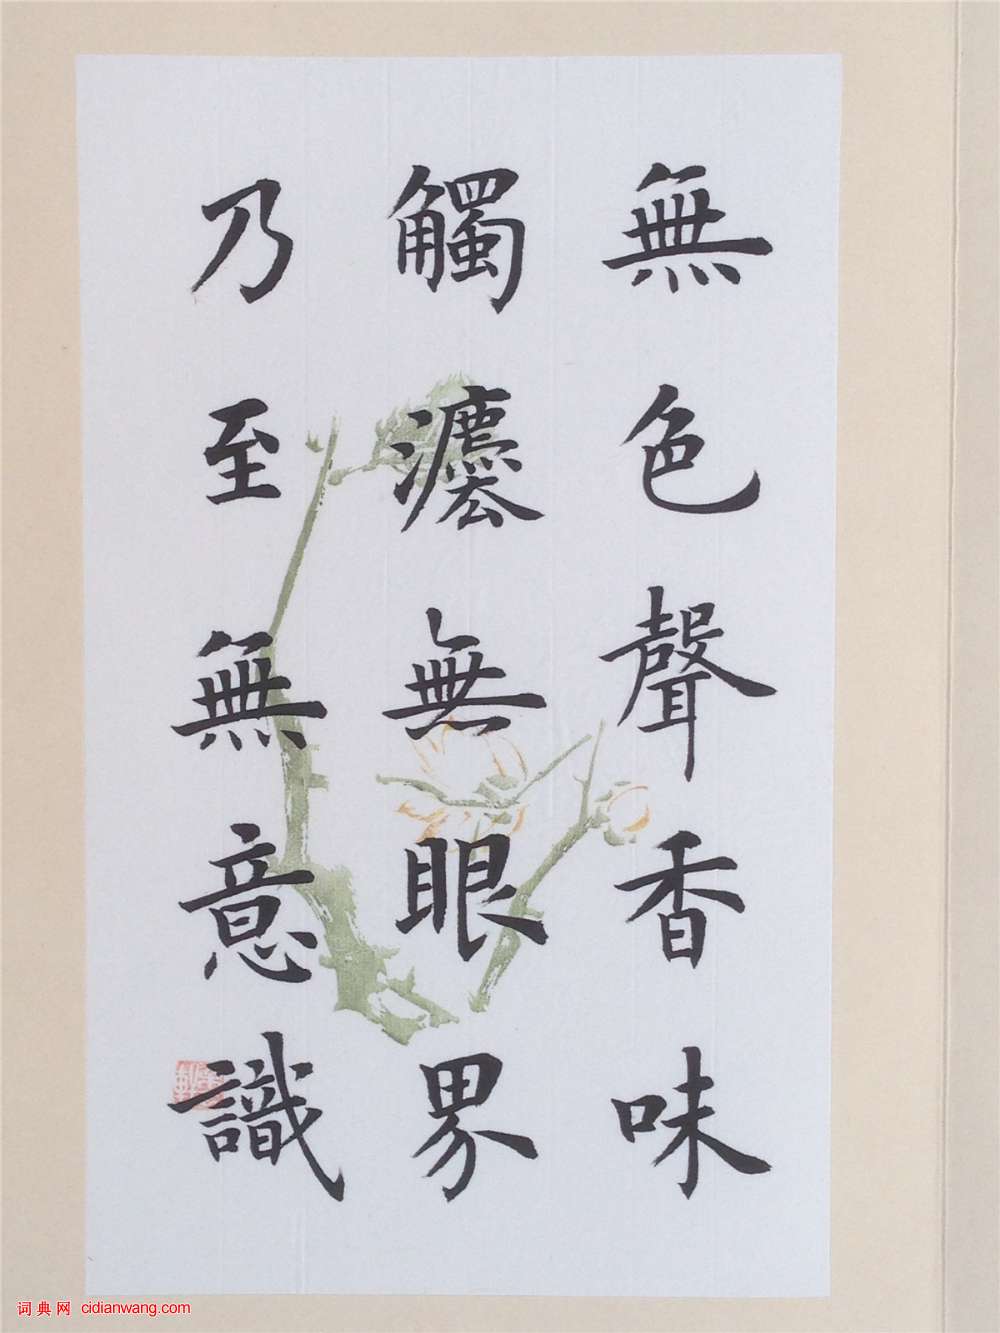 無色聲香味
觸灋無眼界
乃至無意識
词典网 cidianwang.com